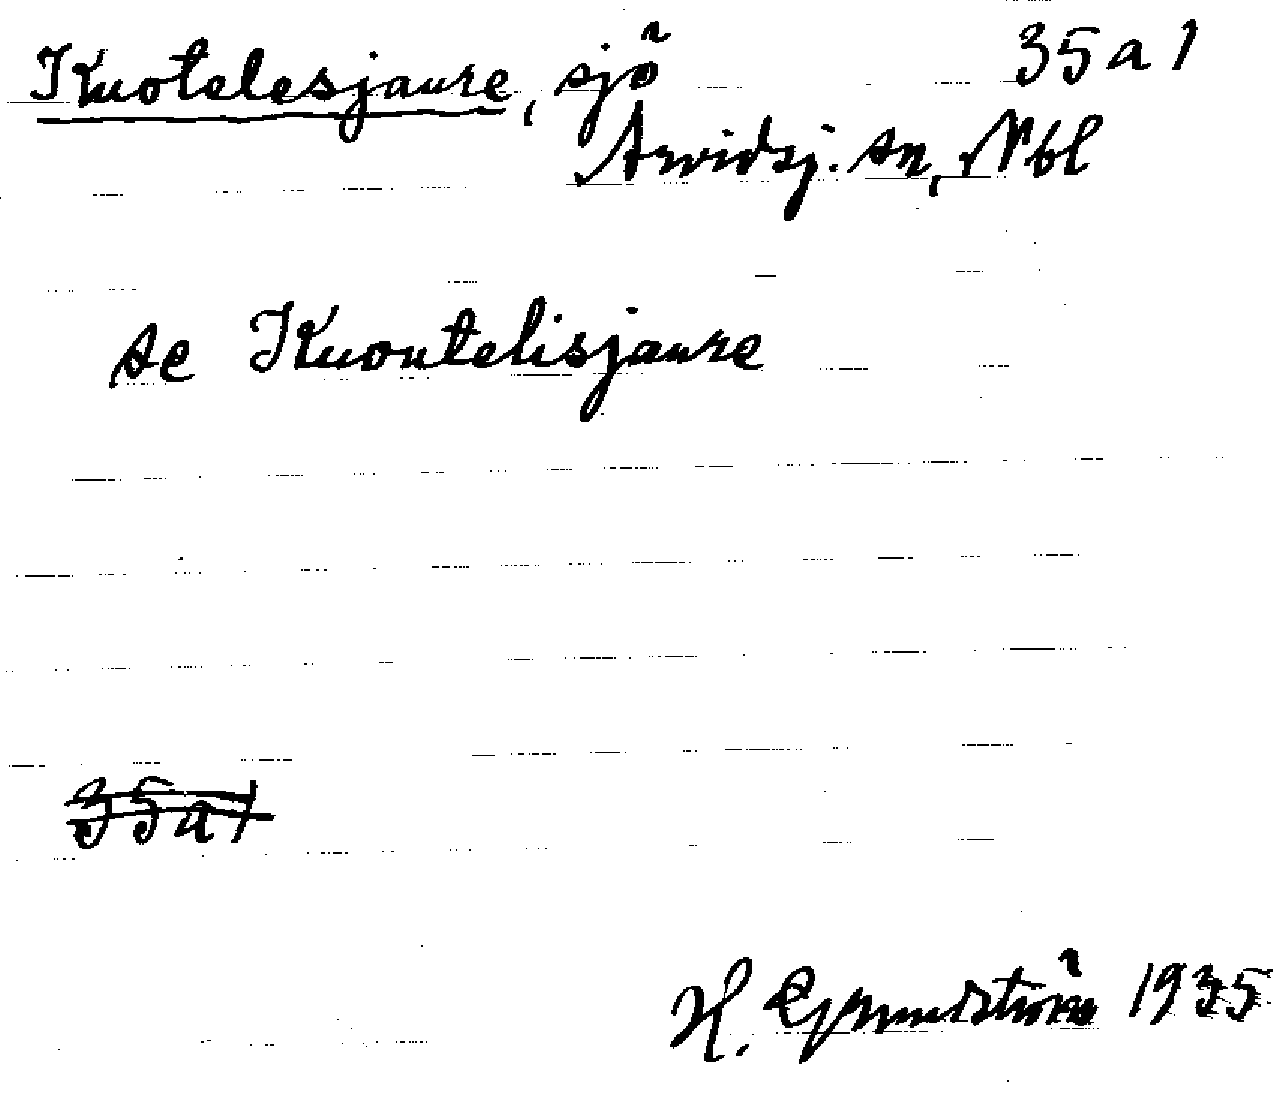 Kuotelesjaure, sjö 35a1
Arvidsj. sn, Nbl
se Kuoutelisjaure
35a1
H. Grundström 1935